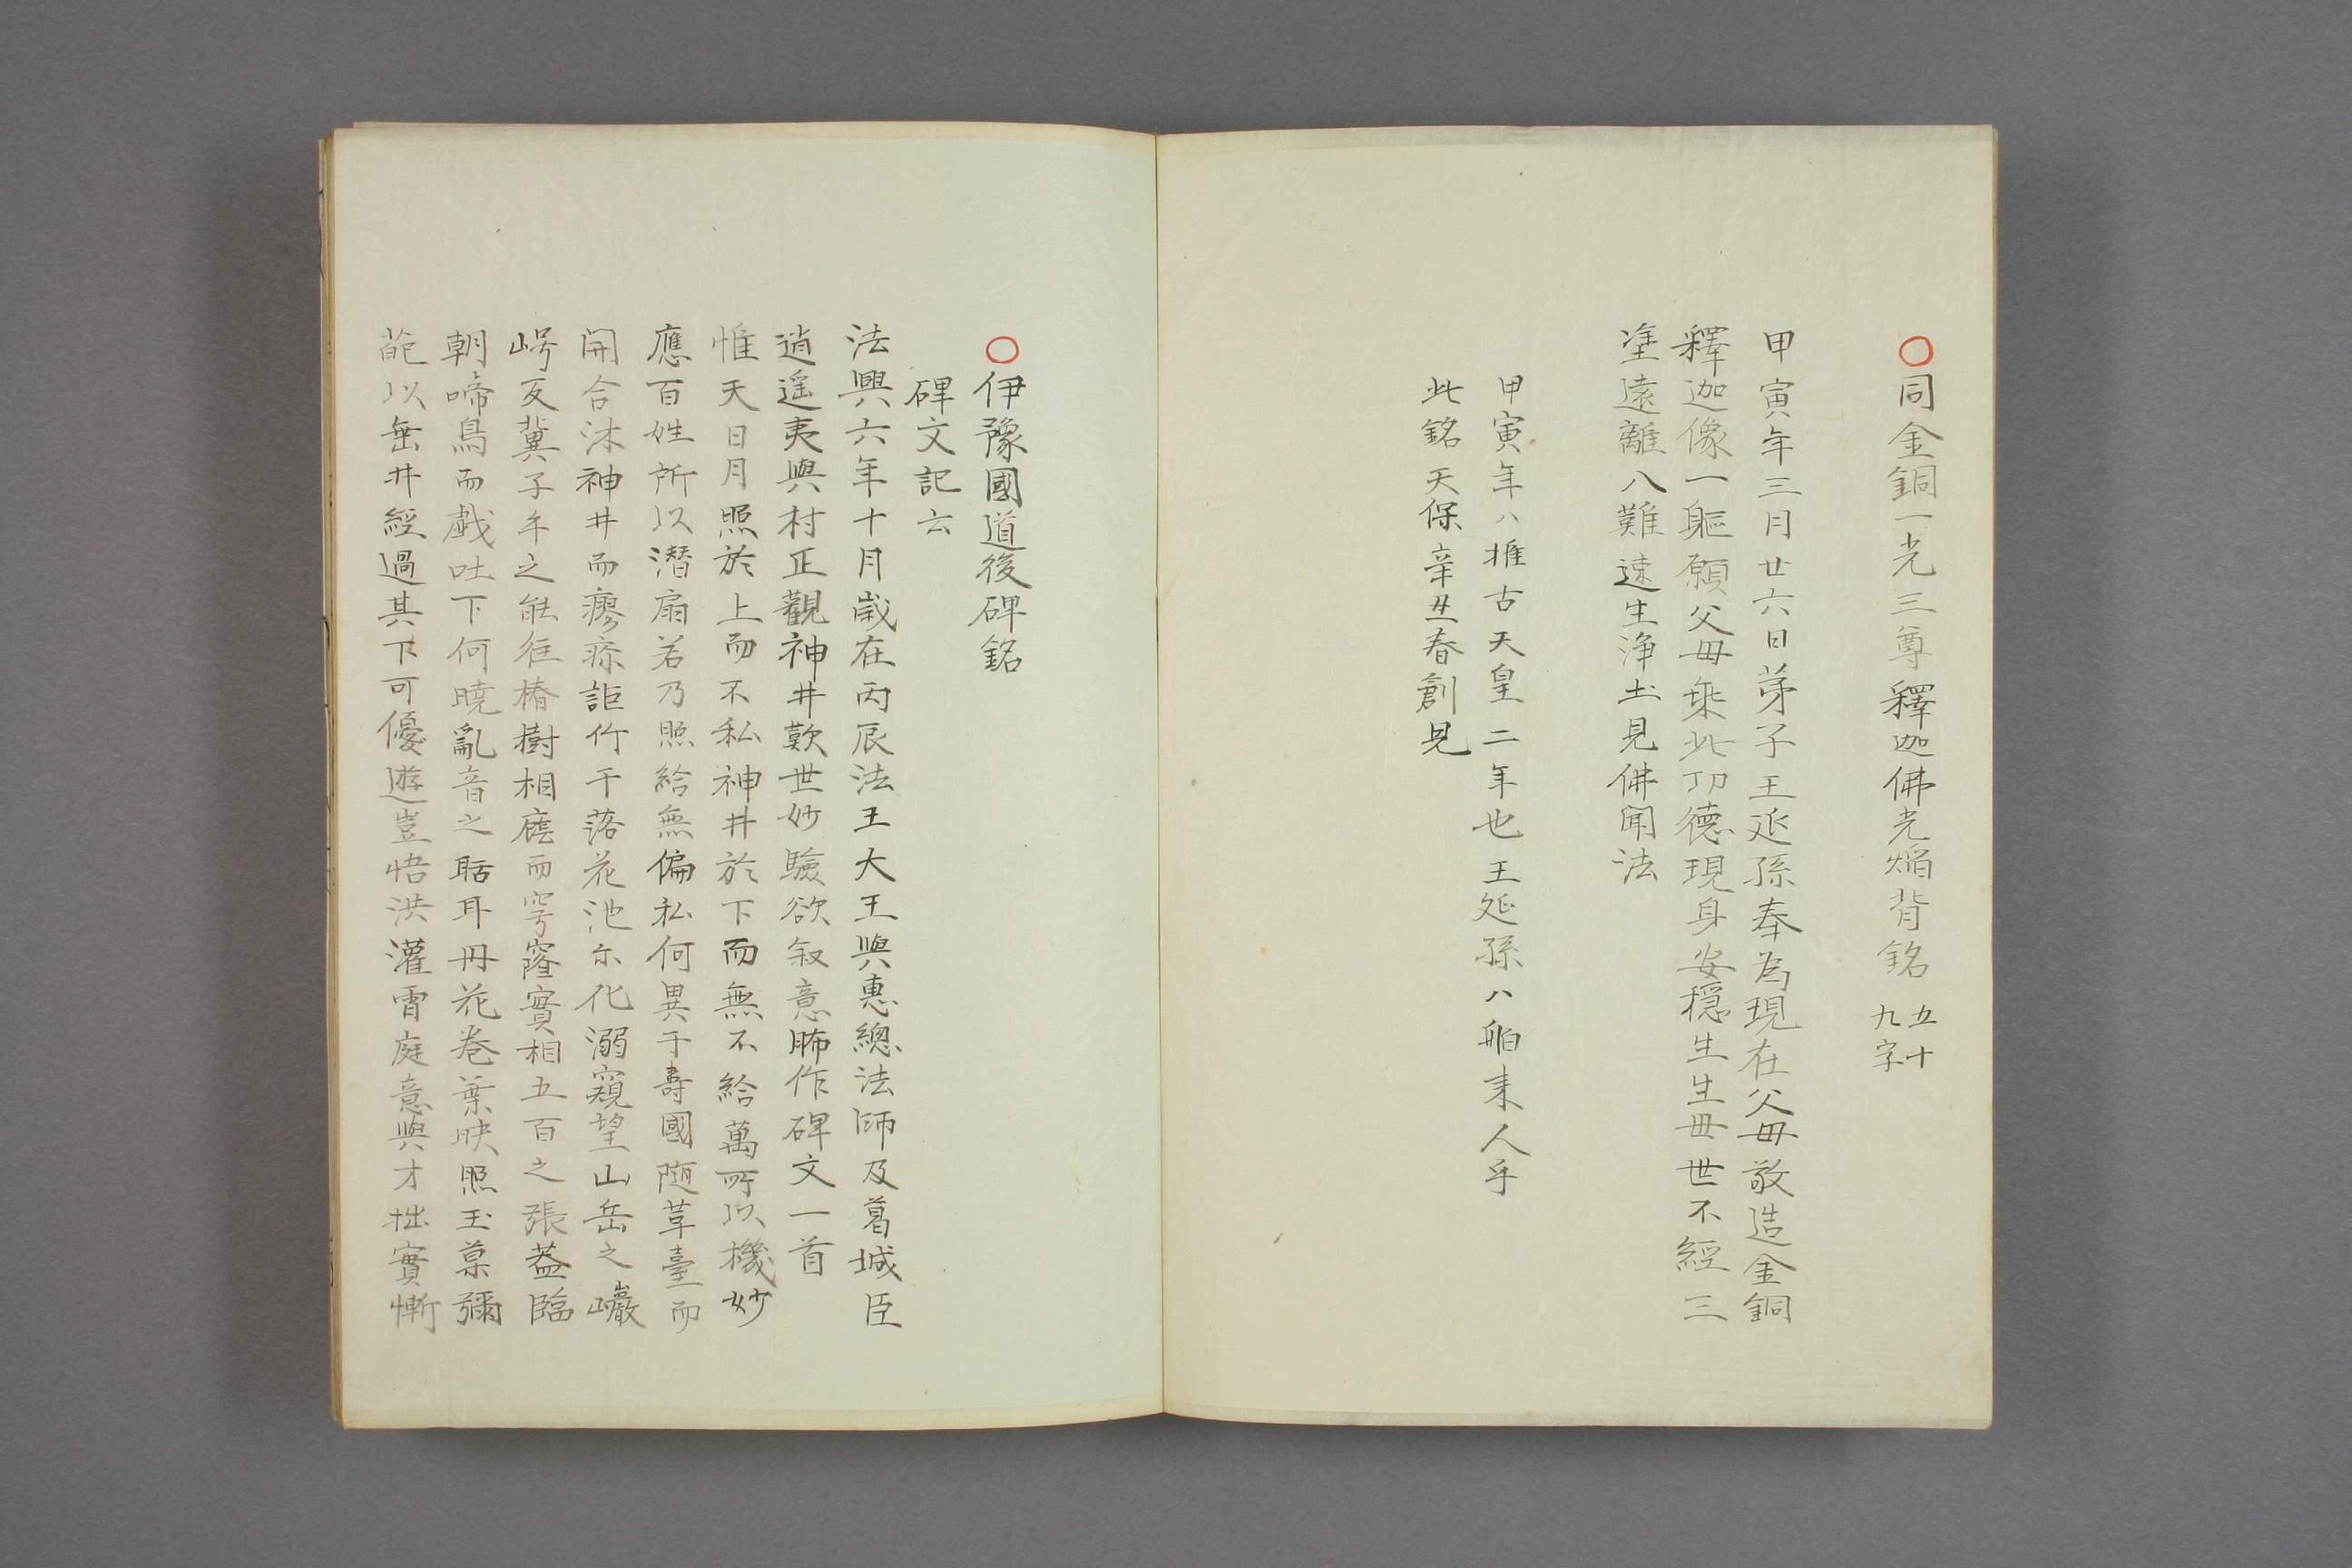 〇同金銅一光三尊釋迦佛光焔背銘 五十九字
甲寅年三月廿六日苐子王延孫奉為現在父毋敬造金銅
釋迦像一軀願父毋乗此㓛德現身安穏生生毋世不經三
塗遠離八難速生浄土見佛聞法
甲寅年ハ推古天皇二年也王延孫ハ舶来人乎
此銘天保辛丑春創見
〇伊豫國道後碑銘
碑文記云
法興六年十月歳在丙辰法王大王與惠總法師及葛城臣
逍遥夷與村正觀神井歎世妙驗欲叙意聊作碑文一首
惟天日月照於上而不私神井於下而無不給萬所以機妙
應百姓所以潜扇若乃照給無偏私何異于壽國随華臺而
開合沐神井而瘳疹詎仵于落花池尓化溺窺望山岳之巖
崿反冀子年之能往椿樹相䕃而穹窿實相五百之張蓋臨
朝啼鳥而戯吐下何曉亂音之聒耳丹花巻葉映照玉菓彌
葩以垂井經過其下可優遊豈悟洪灌霄庭意與才拙實慚